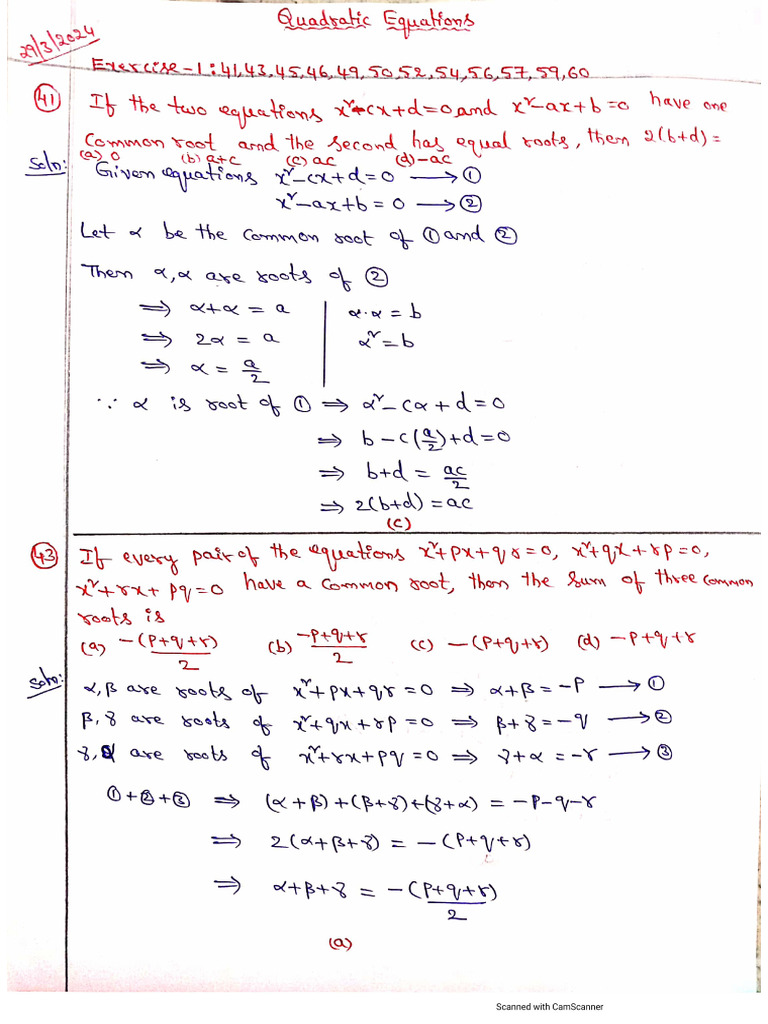 Quadratic Equations
29/3/2024
Exercise-1: 41,43,45,46,49,50,52,54,56,57,59,60
(41) If the two equations x²-cx+d=0 and x²-ax+b=0 have one
common root and the second has equal roots, then 2(b+d)=
(a) 0 (b) a+c (c) ac (d) -ac
Soln: Given equations x²-cx+d=0 → ①
x²-ax+b=0 → ②
Let α be the common root of ① and ②
Then α,α are roots of ②
⇒ α+α = a | α·α = b
⇒ 2α = a | α² = b
⇒ α = a/2
∵ α is root of ① ⇒ α²-cα+d=0
⇒ b-c(a/2)+d=0
⇒ b+d = ac/2
⇒ 2(b+d)=ac
(c)
(43) If every pair of the equations x²+px+qr=0, x²+qx+rp=0,
x²+rx+pq=0 have a common root, then the sum of three common
roots is
(a) -(p+q+r)/2 (b) -p+q+r/2 (c) -(p+q+r) (d) -p+q+r
Soln: α,β are roots of x²+px+qr=0 ⇒ α+β=-p → ①
β,γ are roots of x²+qx+rp=0 ⇒ β+γ=-q → ②
γ,α are roots of x²+rx+pq=0 ⇒ γ+α=-r → ③
①+②+③ ⇒ (α+β)+(β+γ)+(γ+α) = -p-q-r
⇒ 2(α+β+γ) = -(p+q+r)
⇒ α+β+γ = -(p+q+r)/2
(a)
Scanned with CamScanner